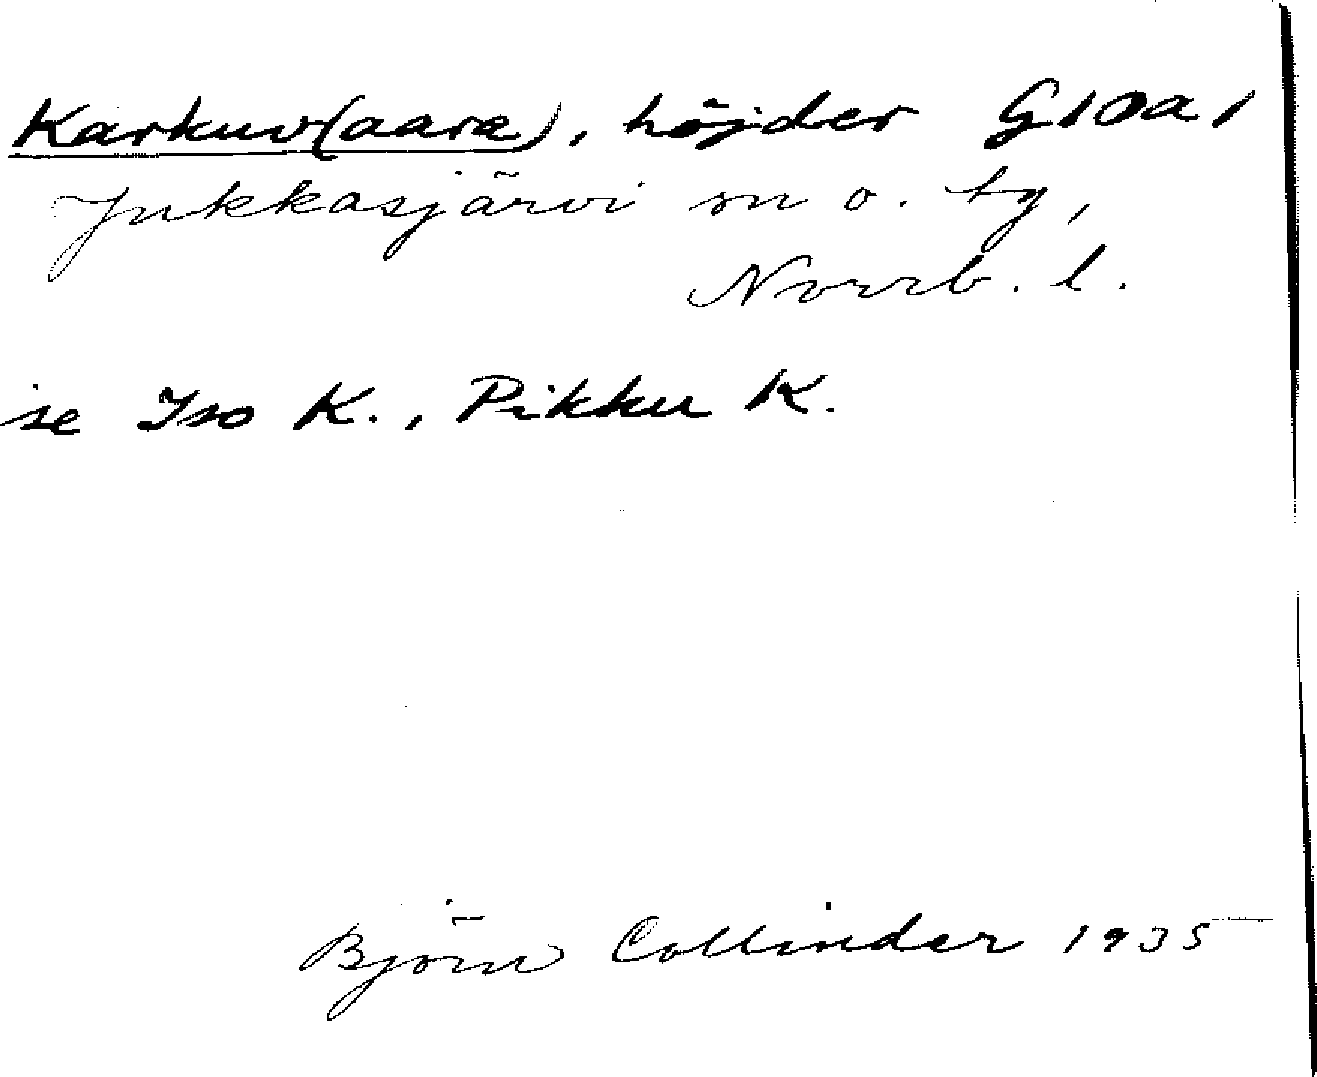 Karkuv(aara), höjder G10a1
Jukkasjärvi sn o. tg,
Norrb. l.
se Iso K., Pikku K.
Björn Collinder 1935